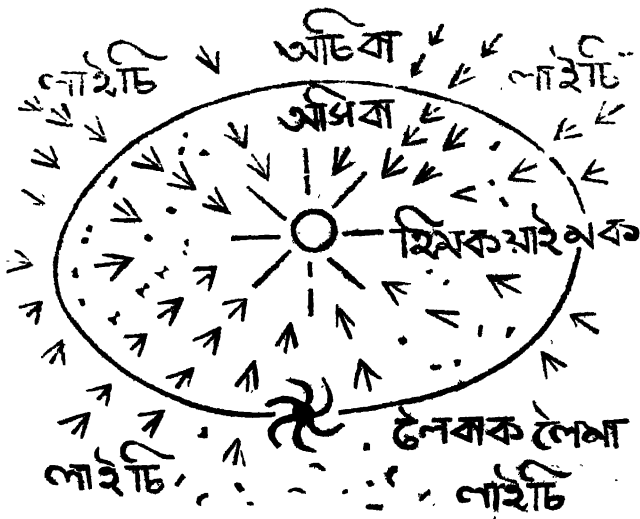 অচিবা
লাইচি
লাইচি
অসিবা
হিমকয়াইমক
লৈবাক লৈমা
লাইচি
লাইচি